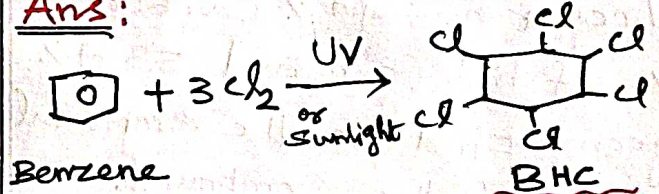 Ans:
+ 3Cl₂ UV or Sunlight
Cl Cl Cl Cl Cl Cl
Benzene BHC